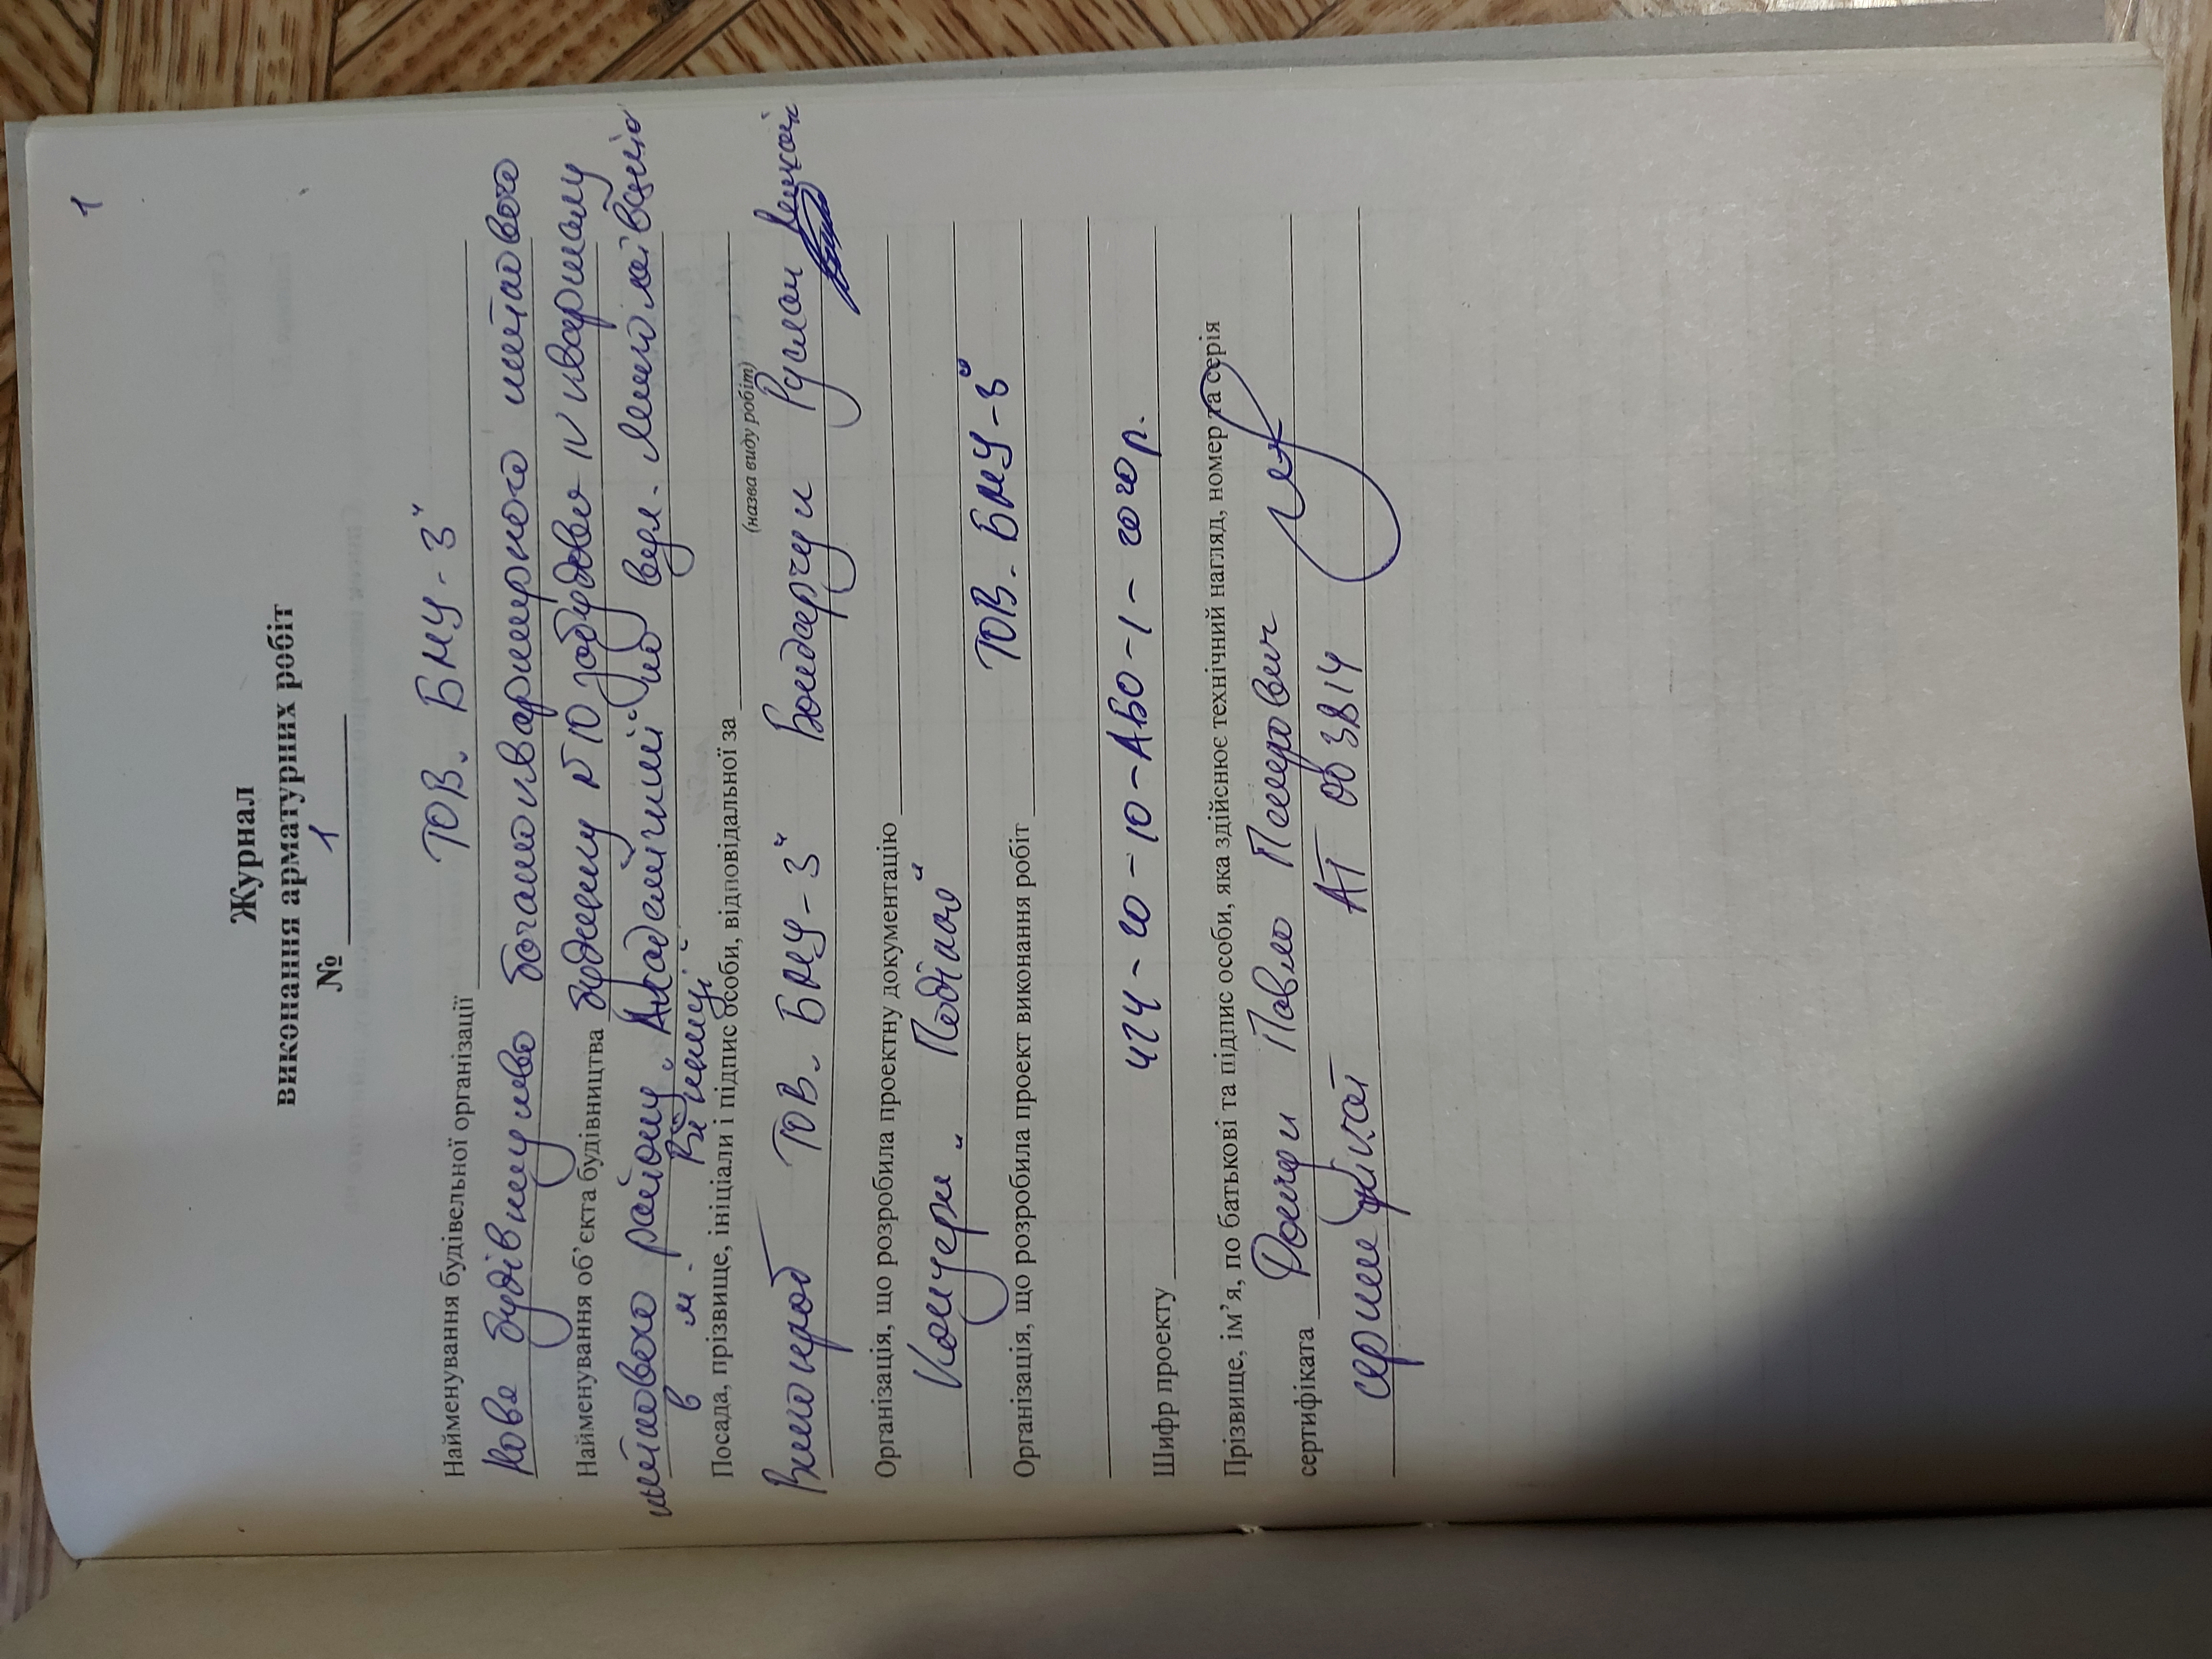 1
Журнал
виконання арматурних робіт
№ 1
Найменування будівельної організації ТОВ. БМУ-3"
Нове будівництво багатоквартирного житлового
Найменування об'єкта будівництва будинку №10 забудови IV кварталу
житлового району "Академічний" по вул.
в м. Вінниці
Посада, прізвище, ініціали і підпис особи, відповідальної за
(назва виду робіт)
Виконроб ТОВ. БМУ-3" Бондарчук Руслан
Організація, що розробила проектну документацію
Концерн "Поділля"
Організація, що розробила проект виконання робіт
ТОВ. БМУ-3"
Шифр проекту 424-20-10-АБО-1-2020р.
Прізвище, ім'я, по батькові та підпис особи, яка здійснює технічний нагляд, номер та серія
сертифіката Павло Петрович
сертифікат АТ 003814